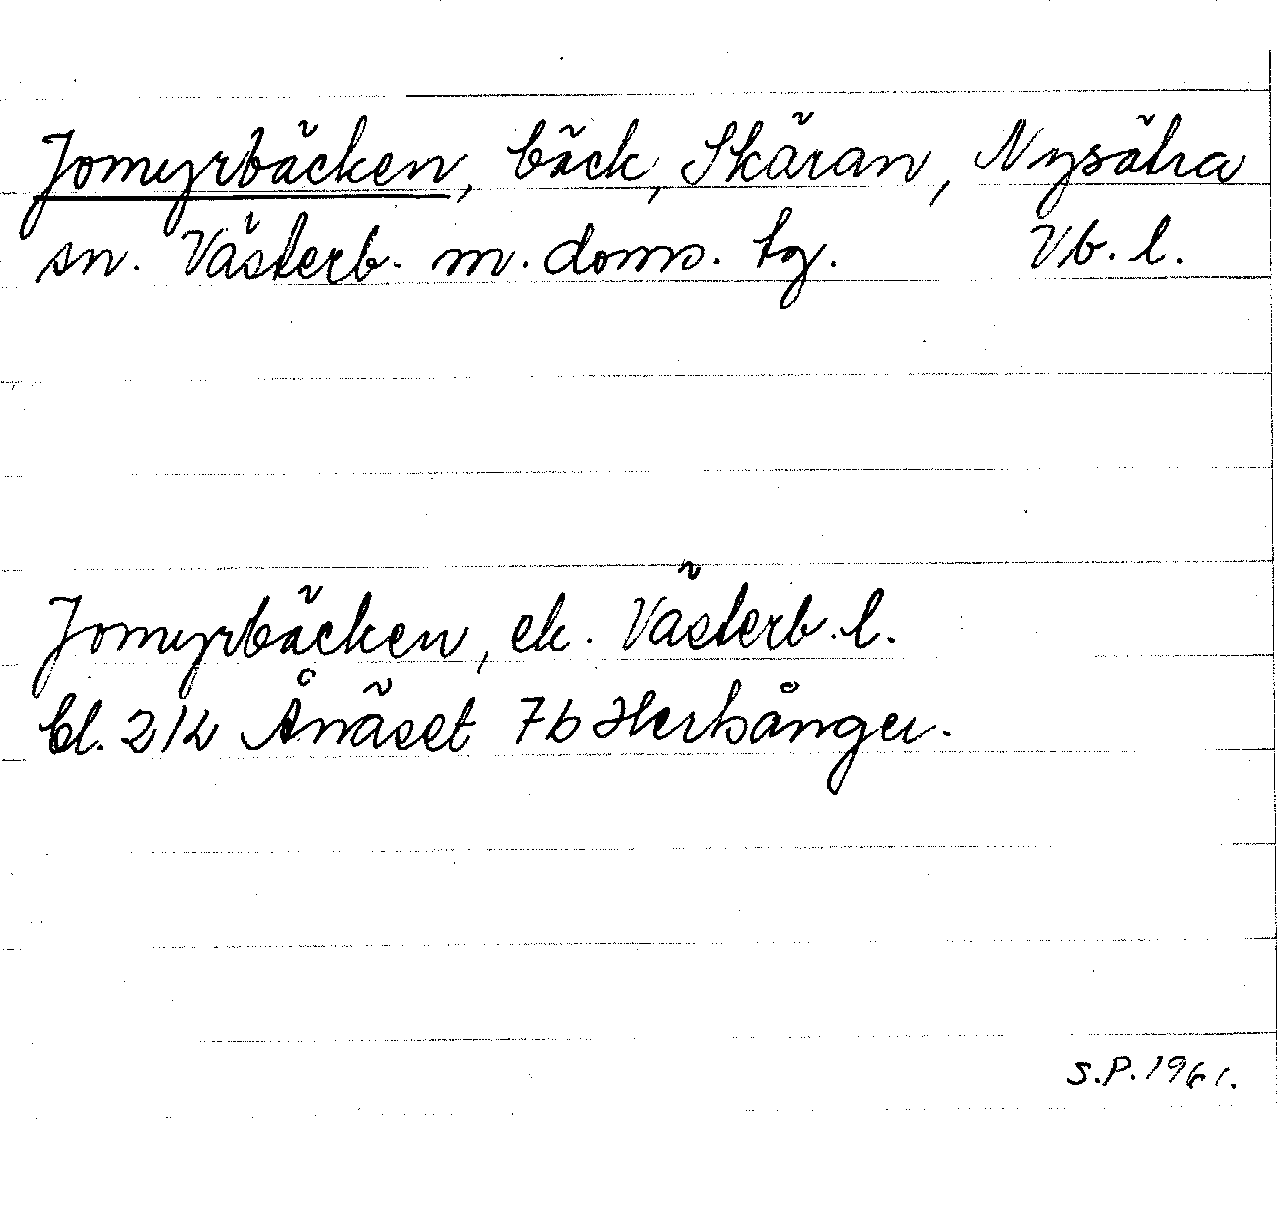 Jomyrbäcken, bäck, Skäran, Nysätra
sn. Västerb. m. doms. tg. Vb. l.
Jomyrbäcken, ek. Västerb. l.
bl. 212 Ånäset 7b Herrånger.
S.P. 1961.